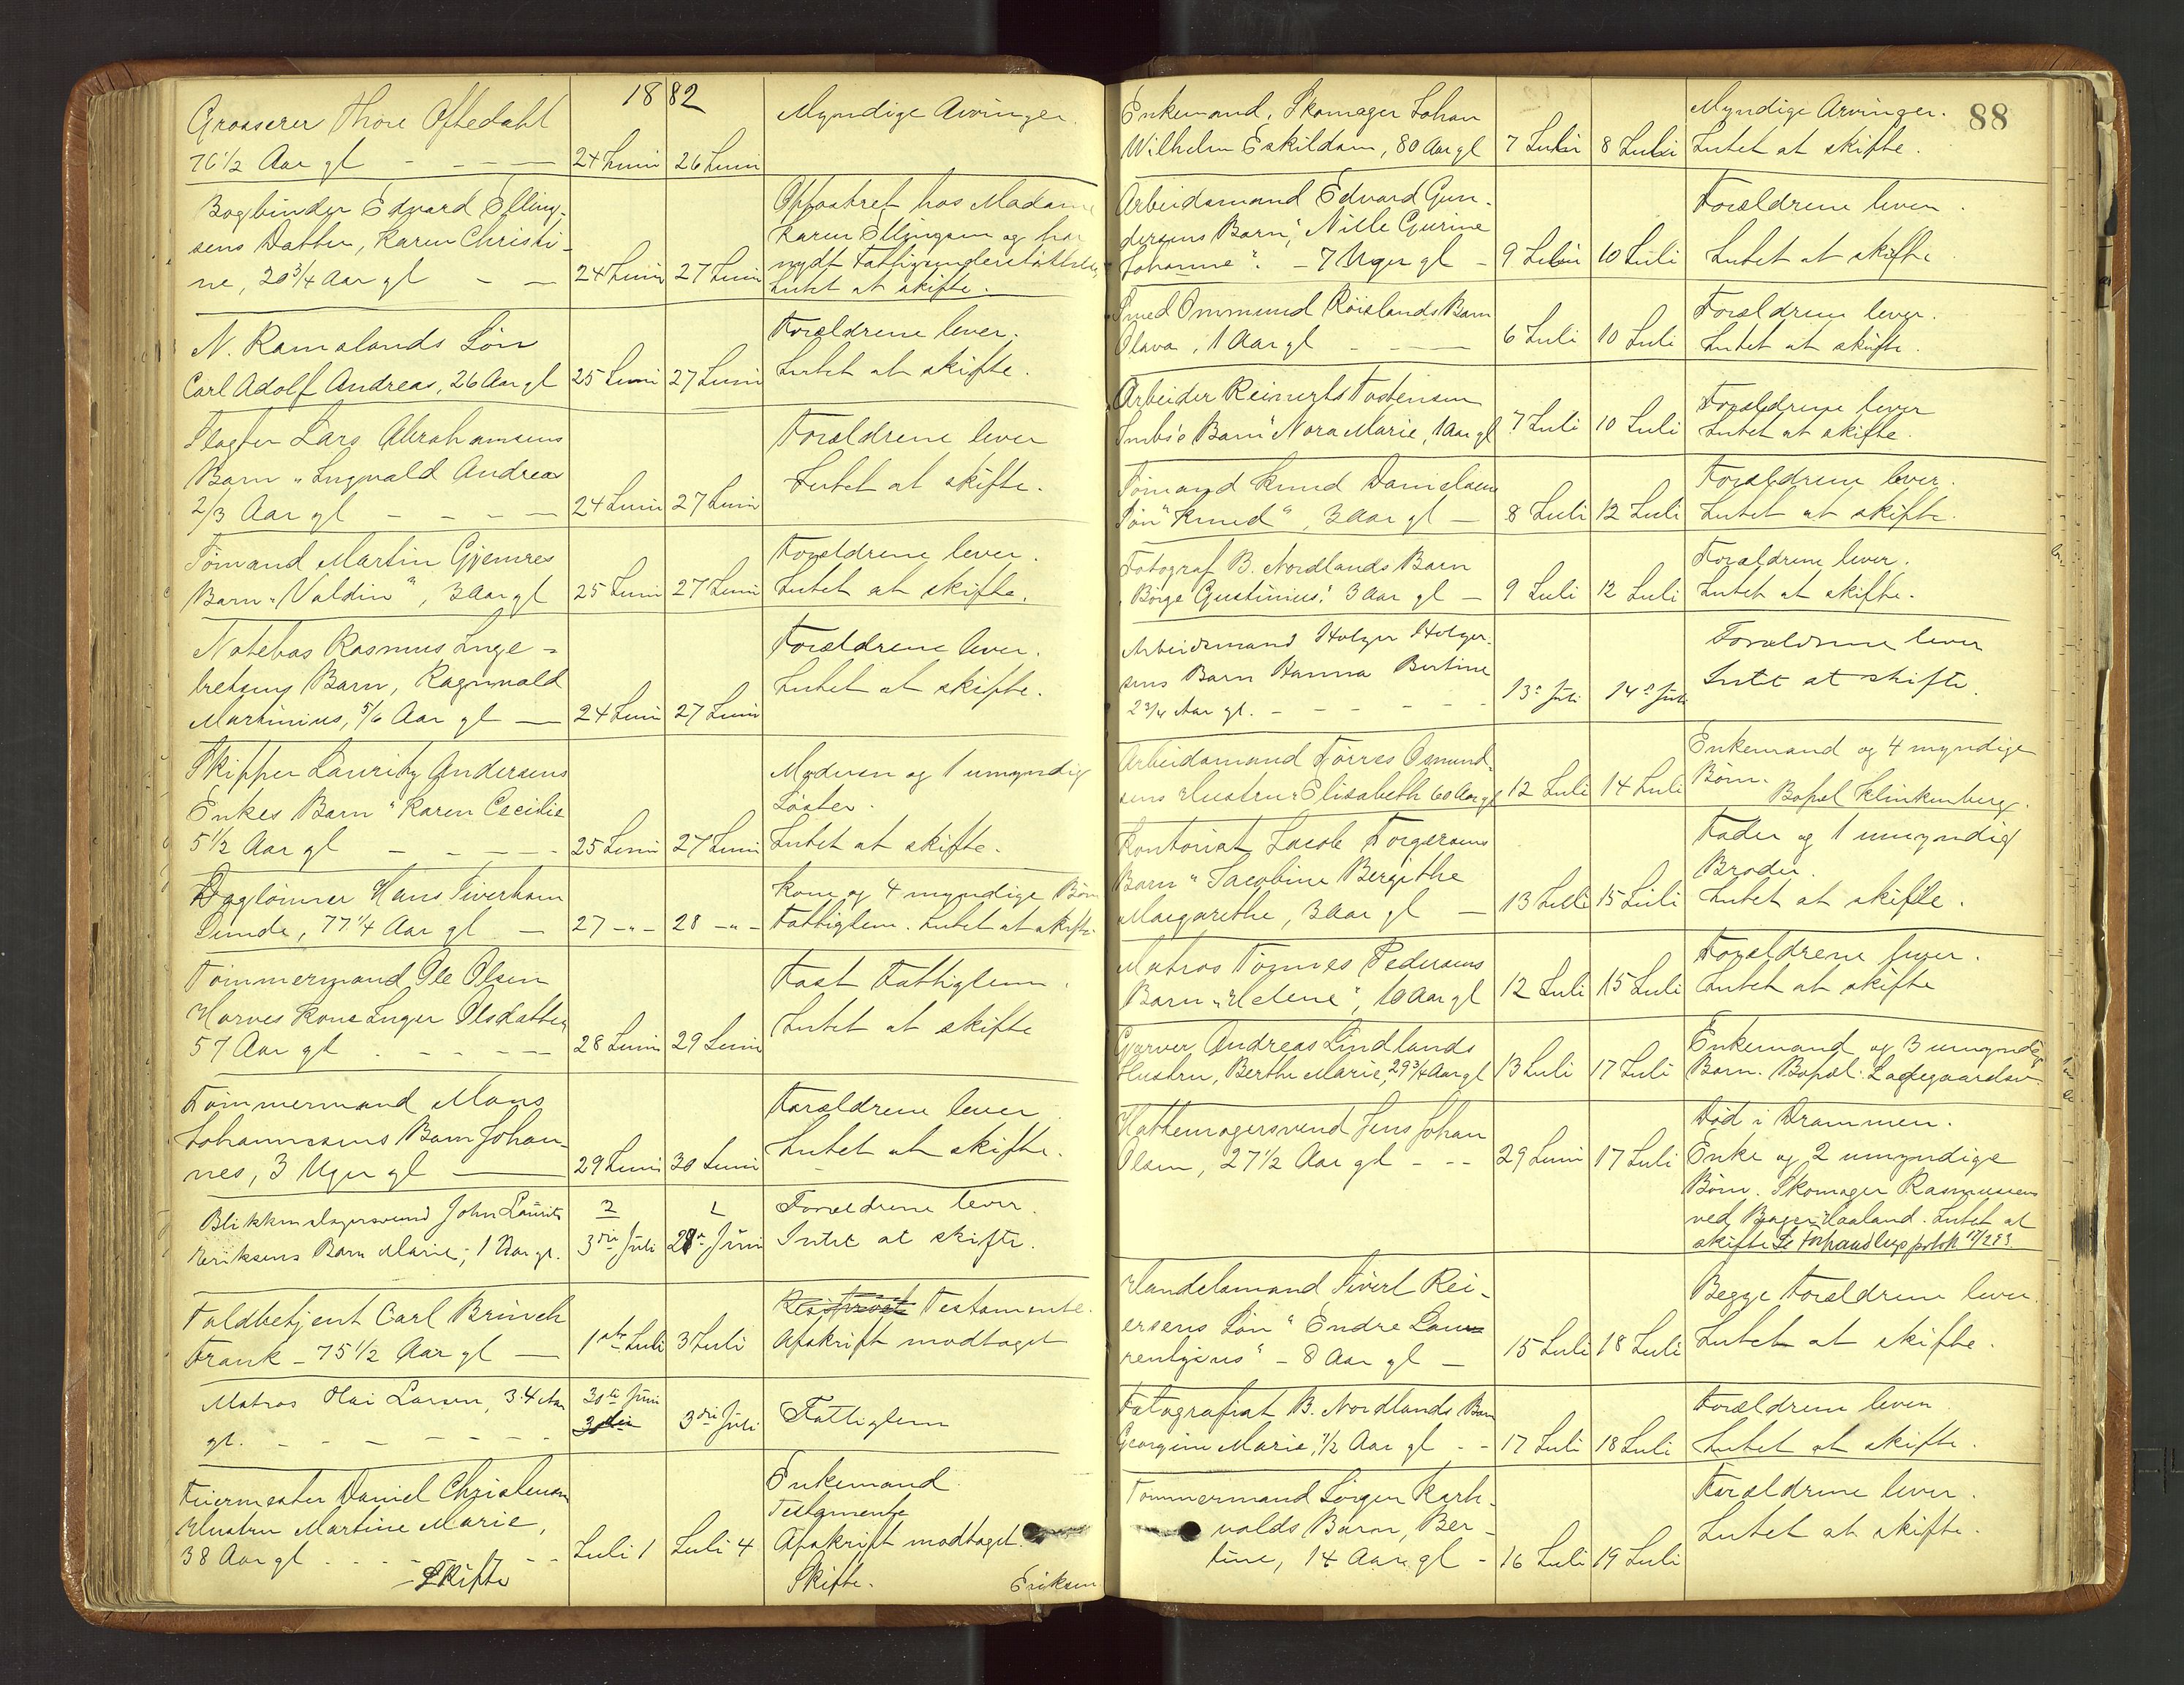 1882
Grosserer Thore Oftedahl
76 1/2 Aar gl - - - - 24 Juni 26 Juni
Myndige Arvinger.
Bogbinder Edvard Elling-
sens Datter, Karen Christi-
ne, 20 3/4 Aar gl - - 24 Juni 27 Juni
Opfostret hos Madam
Karen Ellingsen og har
nydt Fattigunderstøttelse,
Intet at skifte.
N. Ramslands Søn
Carl Adolf Andreas, 26 Aar gl 25 Juni 27 Juni
Forældrene lever.
Intet at skifte.
Slagter Lars Abrahamsens
Barn "Ingvald Andreas
2/3 Aar gl - - - - 24 Juni 27 Juni
Forældrene lever
Intet at skifte.
Sømand Martin Gjemres
Barn "Valdin", 3 Aar gl 25 Juni 27 Juni
Forældrene lever.
Intet at skifte.
Notebas Rasmus Inge-
bretsens Barn, Ragnvald
Martinius, 5/6 Aar gl - 24 Juni 27 Juni
Forældrene lever.
Intet at skifte.
Skipper Lauritz Andersens
Enkes Barn "Karen Cecilie
5 1/2 Aar gl - - - - 25 Juni 27 Juni
Moderen og 1 umyndig
Søster.
Intet at skifte.
Daglønner Hans Siverhsen
Sunde, 77 1/4 Aar gl - 27 -"- 28 -"-
Kone og 4 myndige Børn
Fattiglem. Intet at skifte
Tømmermand Ole Olsen
Horves Kone Inger Olsdatter
57 Aar gl - - - - 28 Juni 29 Juni
Fast Fattiglem.
Intet at skifte
Tømmermand Mons
Johannesens Barn Johan-
nes, 3 Uger gl - 29 Juni 30 Juni
Forældrene lever
Intet at skifte.
Blikkenslagersvend John Laurits
Eriksens Barn Marie, 1 Aar gl. 3die Juli Juni
Forældrene lever.
Intet at skifte.
Toldbetjent Carl Brinch
Frank - 75 1/2 Aar gl - 1ste Juli 3 Juli
Testamente.
Afskrift modtaget
Matros Olai Larsen, 34 Aar
gl. - - - - - - 30te Juni 3die Juli
Fattiglem
Fyrmester Daniel Christensen
Hustru Martine Marie,
38 Aar gl - - - - - Juli 1 Juli 4
Skifte
Enkemand
Testamente
Afskrift modtaget.
Skifte. Eriksen
88
Enkemand, Skomager Johan
Wilhelm Eskildsen, 80 Aar gl 7 Juli 8 Juli
Myndige Arvinger.
Intet at skifte.
Arbeidsmand Edvard Gun-
dersens Barn, "Nille Gurine
Johanne". - 7 Uger gl - 9 Juli 10 Juli
Forældrene lever.
Intet at skifte
Smed Ommund Røislands Barn
Olava, 1 Aar gl - - - 6 Juli 10 Juli
Forældrene lever.
Intet at skifte.
Arbeider Reinerts Tostensen
Barn "Nora Marie, 1 Aar gl 7 Juli 10 Juli
Forældrene lever
Intet at skifte.
Sømand Knud Danielsens
Søn "Knud", 3 Aar gl - 8 Juli 12 Juli
Forældrene lever.
Intet at skifte.
Fotograf B. Nordlands Barn
"Børge Gustinius". 3 Aar gl - 9 Juli 12 Juli
Forældrene lever.
Intet at skifte.
Arbeidsmand Holger Holger-
sens Barn Hanna Bertine
2 3/4 Aar gl. - - - - - 13de Juli 14de Juli
Forældrene lever
Intet at skifte.
Arbeidsmand Tørres Osmund-
sens Hustru Elisabeth 60 Aar gl 12 Juli 14 Juli
Enkemand og 4 myndige
Børn.
Bopæl Klinkenberg.
Kontorist Jacob Torgersens
Barn "Jacobine Bergithe
Margarethe, 3 Aar gl - 13 Juli 15 Juli
Fader og 1 umyndig
Broder.
Intet at skifte.
Matros Tønnes Pedersens
Barn "Helene", 10 Aar gl 12 Juli 15 Juli
Forældrene lever.
Intet at skifte
Garver Andreas Lindlands
Hustru, Berthe Marie, 29 3/4 Aar gl 13 Juli 17 Juli
Enkemand og 3 umyndige
Børn. Bopæl: Ladegaardsv.
Hattemagersvend Jens Johan
Olsen, 27 1/2 Aar gl - - - 29 Juni 17 Juli
Død i Drammen.
Enke og 2 umyndige
Børn. Skomager Rasmussens
ved Bager Haaland. Intet at
skifte Se Forhandlingsprotok
Handelsmand Sivert Rei-
ersens Søn "Endre Lau-
rentzius" - 8 Aar gl - 15 Juli 18 Juli
Begge Forældrene lever.
Intet at skifte.
Fotografist B. Nordlands Barn
Georgine Marie, 1/2 Aar gl - - 17 Juli 18 Juli
Forældrene lever
Intet at skifte.
Tømmermand Jørgen Karh-
volds Barn, Ber-
tine, 14 Aar gl - 16 Juli 19 Juli
Forældrene lever.
Intet at skifte.